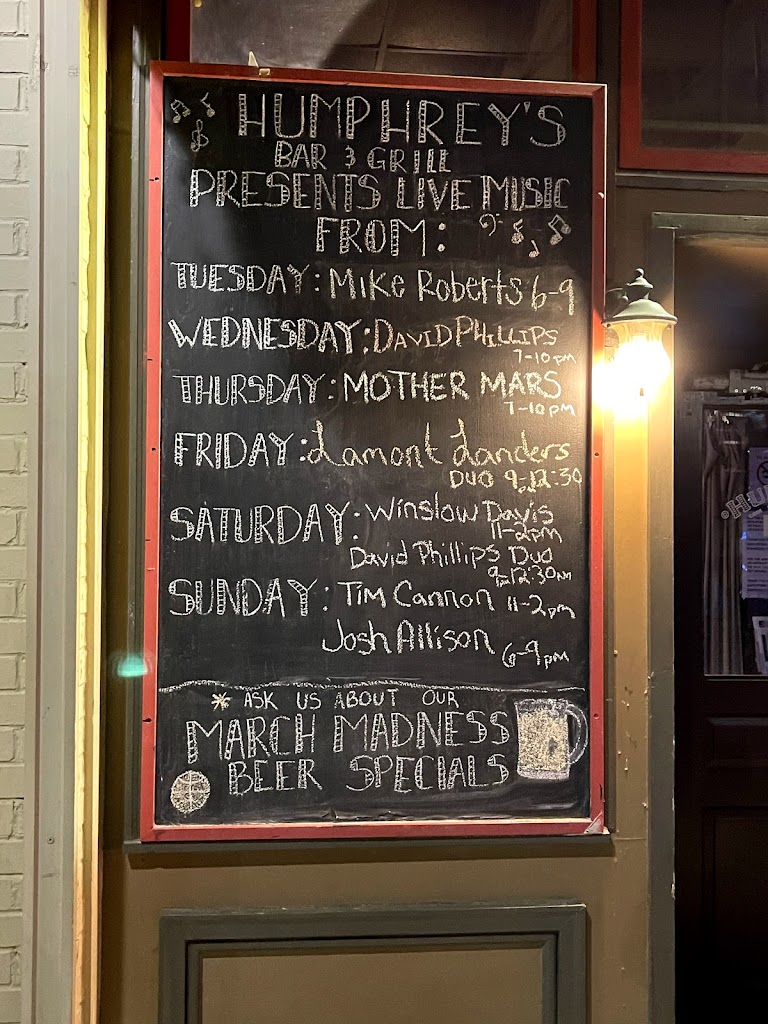 HUMPHREY'S
BAR & GRILL
PRESENTS LIVE MUSIC
FROM:
TUESDAY: Mike Roberts 6-9
WEDNESDAY: DAVID PHILLIPS
7-10pm
THURSDAY: MOTHER MARS
7-10pm
FRIDAY: Lamont Landers
DUO 9-12:30
SATURDAY: Winslow Davis
11-2pm
David Phillips Duo
9-12:30am
SUNDAY: Tim Cannon 11-2pm
Josh Allison 6-9pm
* ASK US ABOUT OUR
MARCH MADNESS
BEER SPECIALS